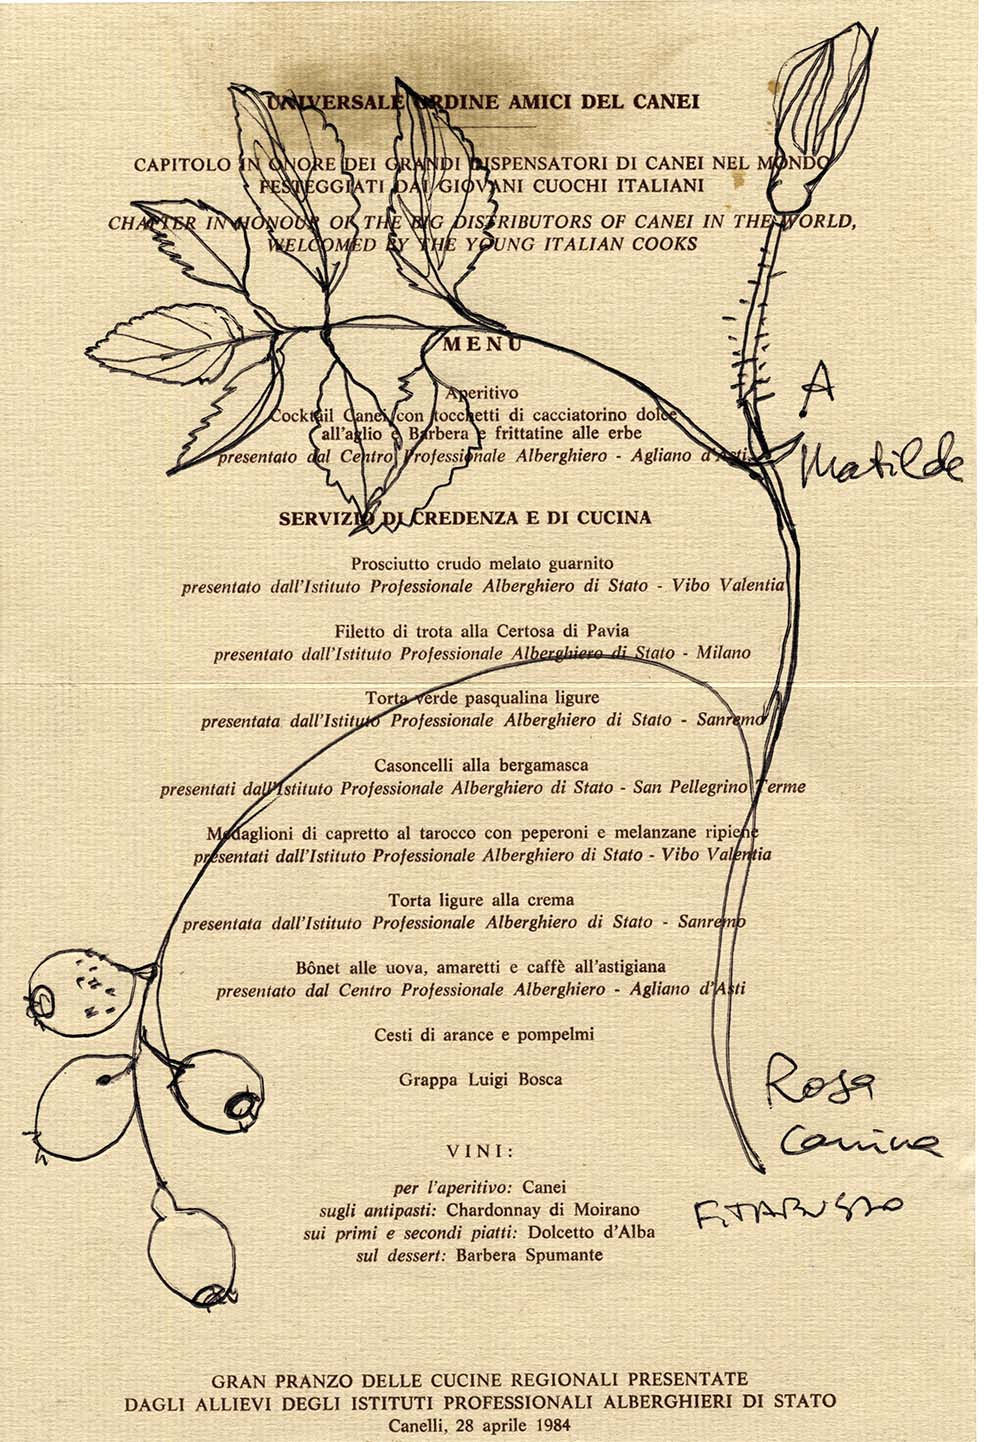 UNIVERSALE ORDINE AMICI DEL CANEI
CAPITOLO IN ONORE DEI GRANDI DISPENSATORI DI CANEI NEL MONDO
FESTEGGIATI DAI GIOVANI CUOCHI ITALIANI
CHAPTER IN HONOUR OF THE BIG DISTRIBUTORS OF CANEI IN THE WORLD,
WELCOMED BY THE YOUNG ITALIAN COOKS
MENU
Aperitivo
Cocktail Canei con tocchetti di cacciatorino dolce
all'aglio e Barbera e frittatine alle erbe
presentato dal Centro Professionale Alberghiero - Agliano d'Asti
A
Matilde
SERVIZIO DI CREDENZA E DI CUCINA
Prosciutto crudo melato guarnito
presentato dall'Istituto Professionale Alberghiero di Stato - Vibo Valentia
Filetto di trota alla Certosa di Pavia
presentato dall'Istituto Professionale Alberghiero di Stato - Milano
Torta verde pasqualina ligure
presentata dall'Istituto Professionale Alberghiero di Stato - Sanremo
Casoncelli alla bergamasca
presentati dall'Istituto Professionale Alberghiero di Stato - San Pellegrino Terme
Medaglioni di capretto al tarocco con peperoni e melanzane ripiene
presentati dall'Istituto Professionale Alberghiero di Stato - Vibo Valentia
Torta ligure alla crema
presentata dall'Istituto Professionale Alberghiero di Stato - Sanremo
Bônet alle uova, amaretti e caffè all'astigiana
presentato dal Centro Professionale Alberghiero - Agliano d'Asti
Cesti di arance e pompelmi
Grappa Luigi Bosca
Rosa
Canina
VINI:
per l'aperitivo: Canei
sugli antipasti: Chardonnay di Moirano
sui primi e secondi piatti: Dolcetto d'Alba
sul dessert: Barbera Spumante
GRAN PRANZO DELLE CUCINE REGIONALI PRESENTATE
DAGLI ALLIEVI DEGLI ISTITUTI PROFESSIONALI ALBERGHIERI DI STATO
Canelli, 28 aprile 1984